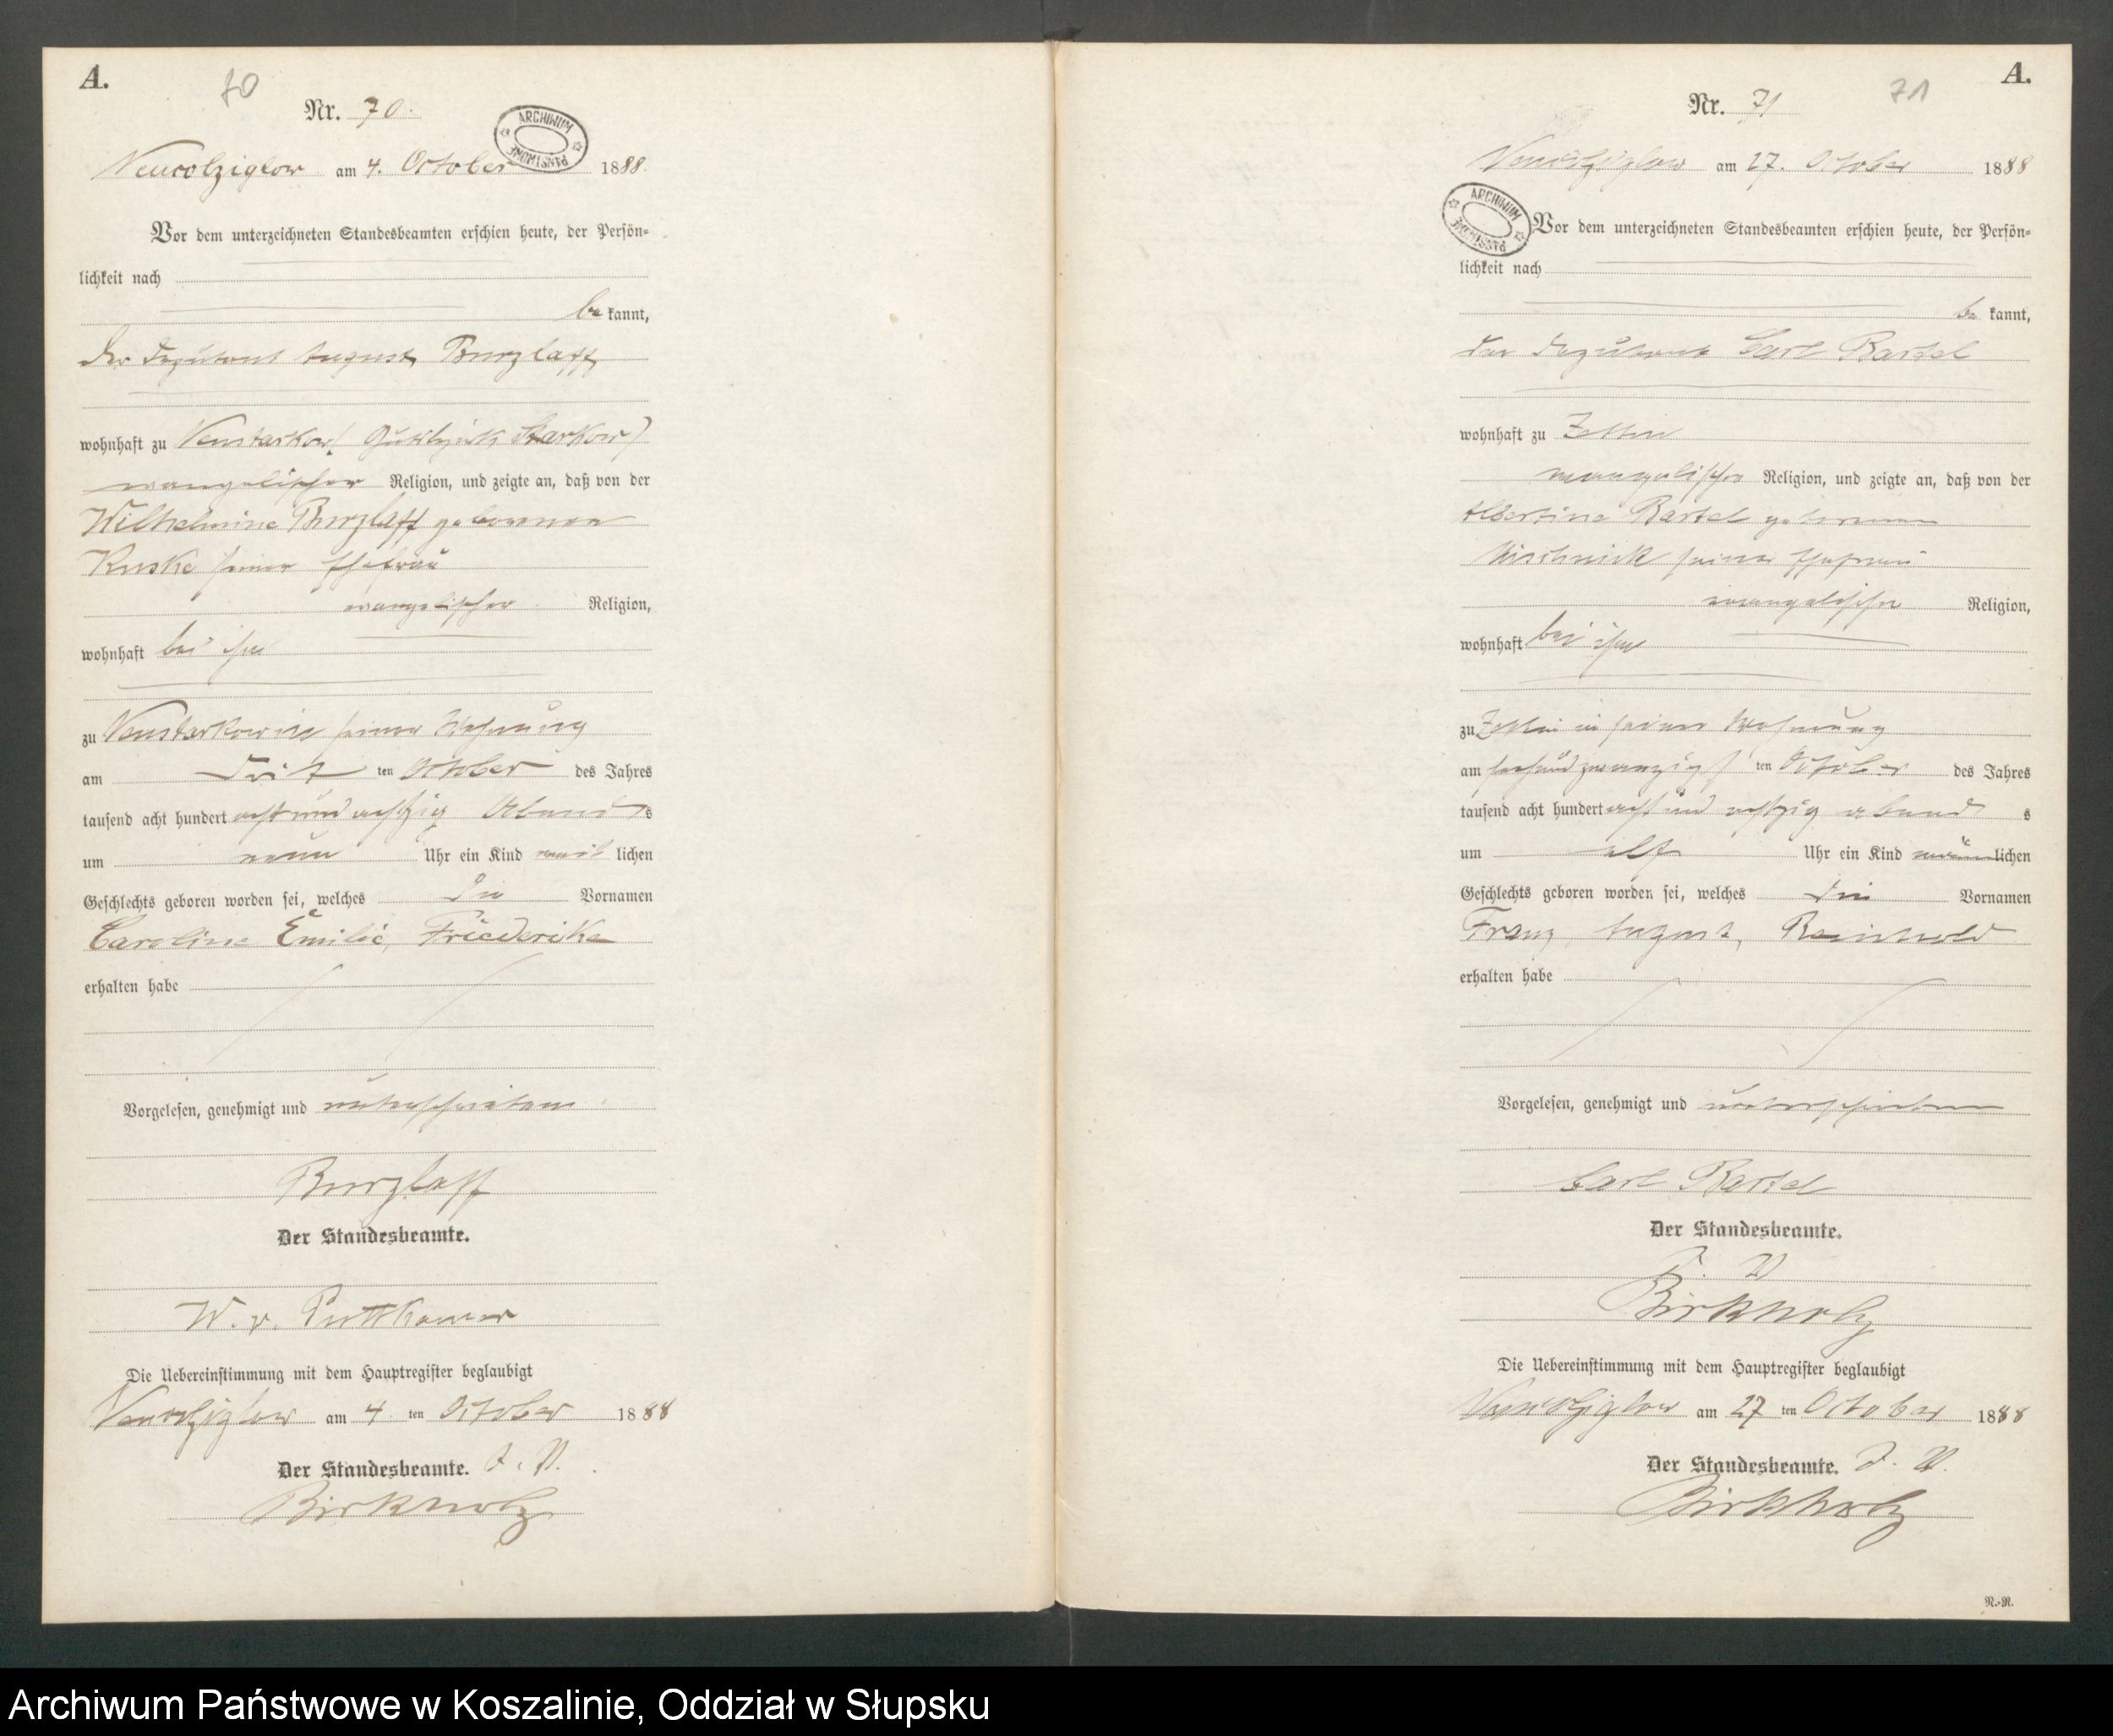 A.
70
Nr. 70.
ARCHIWUM PAŃSTWOWE
Neukolziglow am 4. October 1888.
Vor dem unterzeichneten Standesbeamten erschien heute, der Persön=
lichkeit nach
be kannt,
der Deputant August Burzlaff
wohnhaft zu Neustarkow ( Starkow)
evangelischer Religion, und zeigte an, daß von der
Wilhelmine Burzlaff geborenen
Kuske seiner Ehefrau
evangelischer Religion,
wohnhaft bei ihm
zu Neustarkow in seiner Wohnung
am ten October des Jahres
tausend acht hundert acht und achtzig Abends
um neun Uhr ein Kind weib lichen
Geschlechts geboren worden sei, welches die Vornamen
Caroline Emilie, Friederike
erhalten habe
Vorgelesen, genehmigt und unterschrieben
Burzlaff
Der Standesbeamte.
W. v. Puttkamer
Die Uebereinstimmung mit dem Hauptregister beglaubigt
Neukolziglow am 4 ten October 1888
Der Standesbeamte. J. V.
Birkholz
A.
71
Nr. 71
ARCHIWUM PAŃSTWOWE
Neukolziglow am 27. October 1888
Vor dem unterzeichneten Standesbeamten erschien heute, der Persön=
lichkeit nach
be kannt,
der Deputant Carl Bartel
wohnhaft zu Zettin
evangelischer Religion, und zeigte an, daß von der
Albertine Bartel geborenen
seiner Ehefrau
evangelischer Religion,
wohnhaft bei ihm
zu Zettin in seiner Wohnung
am sechsundzwanzigsten October des Jahres
tausend acht hundert acht und achtzig abends
um elf Uhr ein Kind männlichen
Geschlechts geboren worden sei, welches die Vornamen
Franz, August, Reinhold
erhalten habe
Vorgelesen, genehmigt und unterschrieben
Carl Bartel
Der Standesbeamte.
J. V.
Birkholz
Die Uebereinstimmung mit dem Hauptregister beglaubigt
Neukolziglow am 27 ten October 1888
Der Standesbeamte. J. V.
Birkholz
N.-N.
Archiwum Państwowe w Koszalinie, Oddział w Słupsku